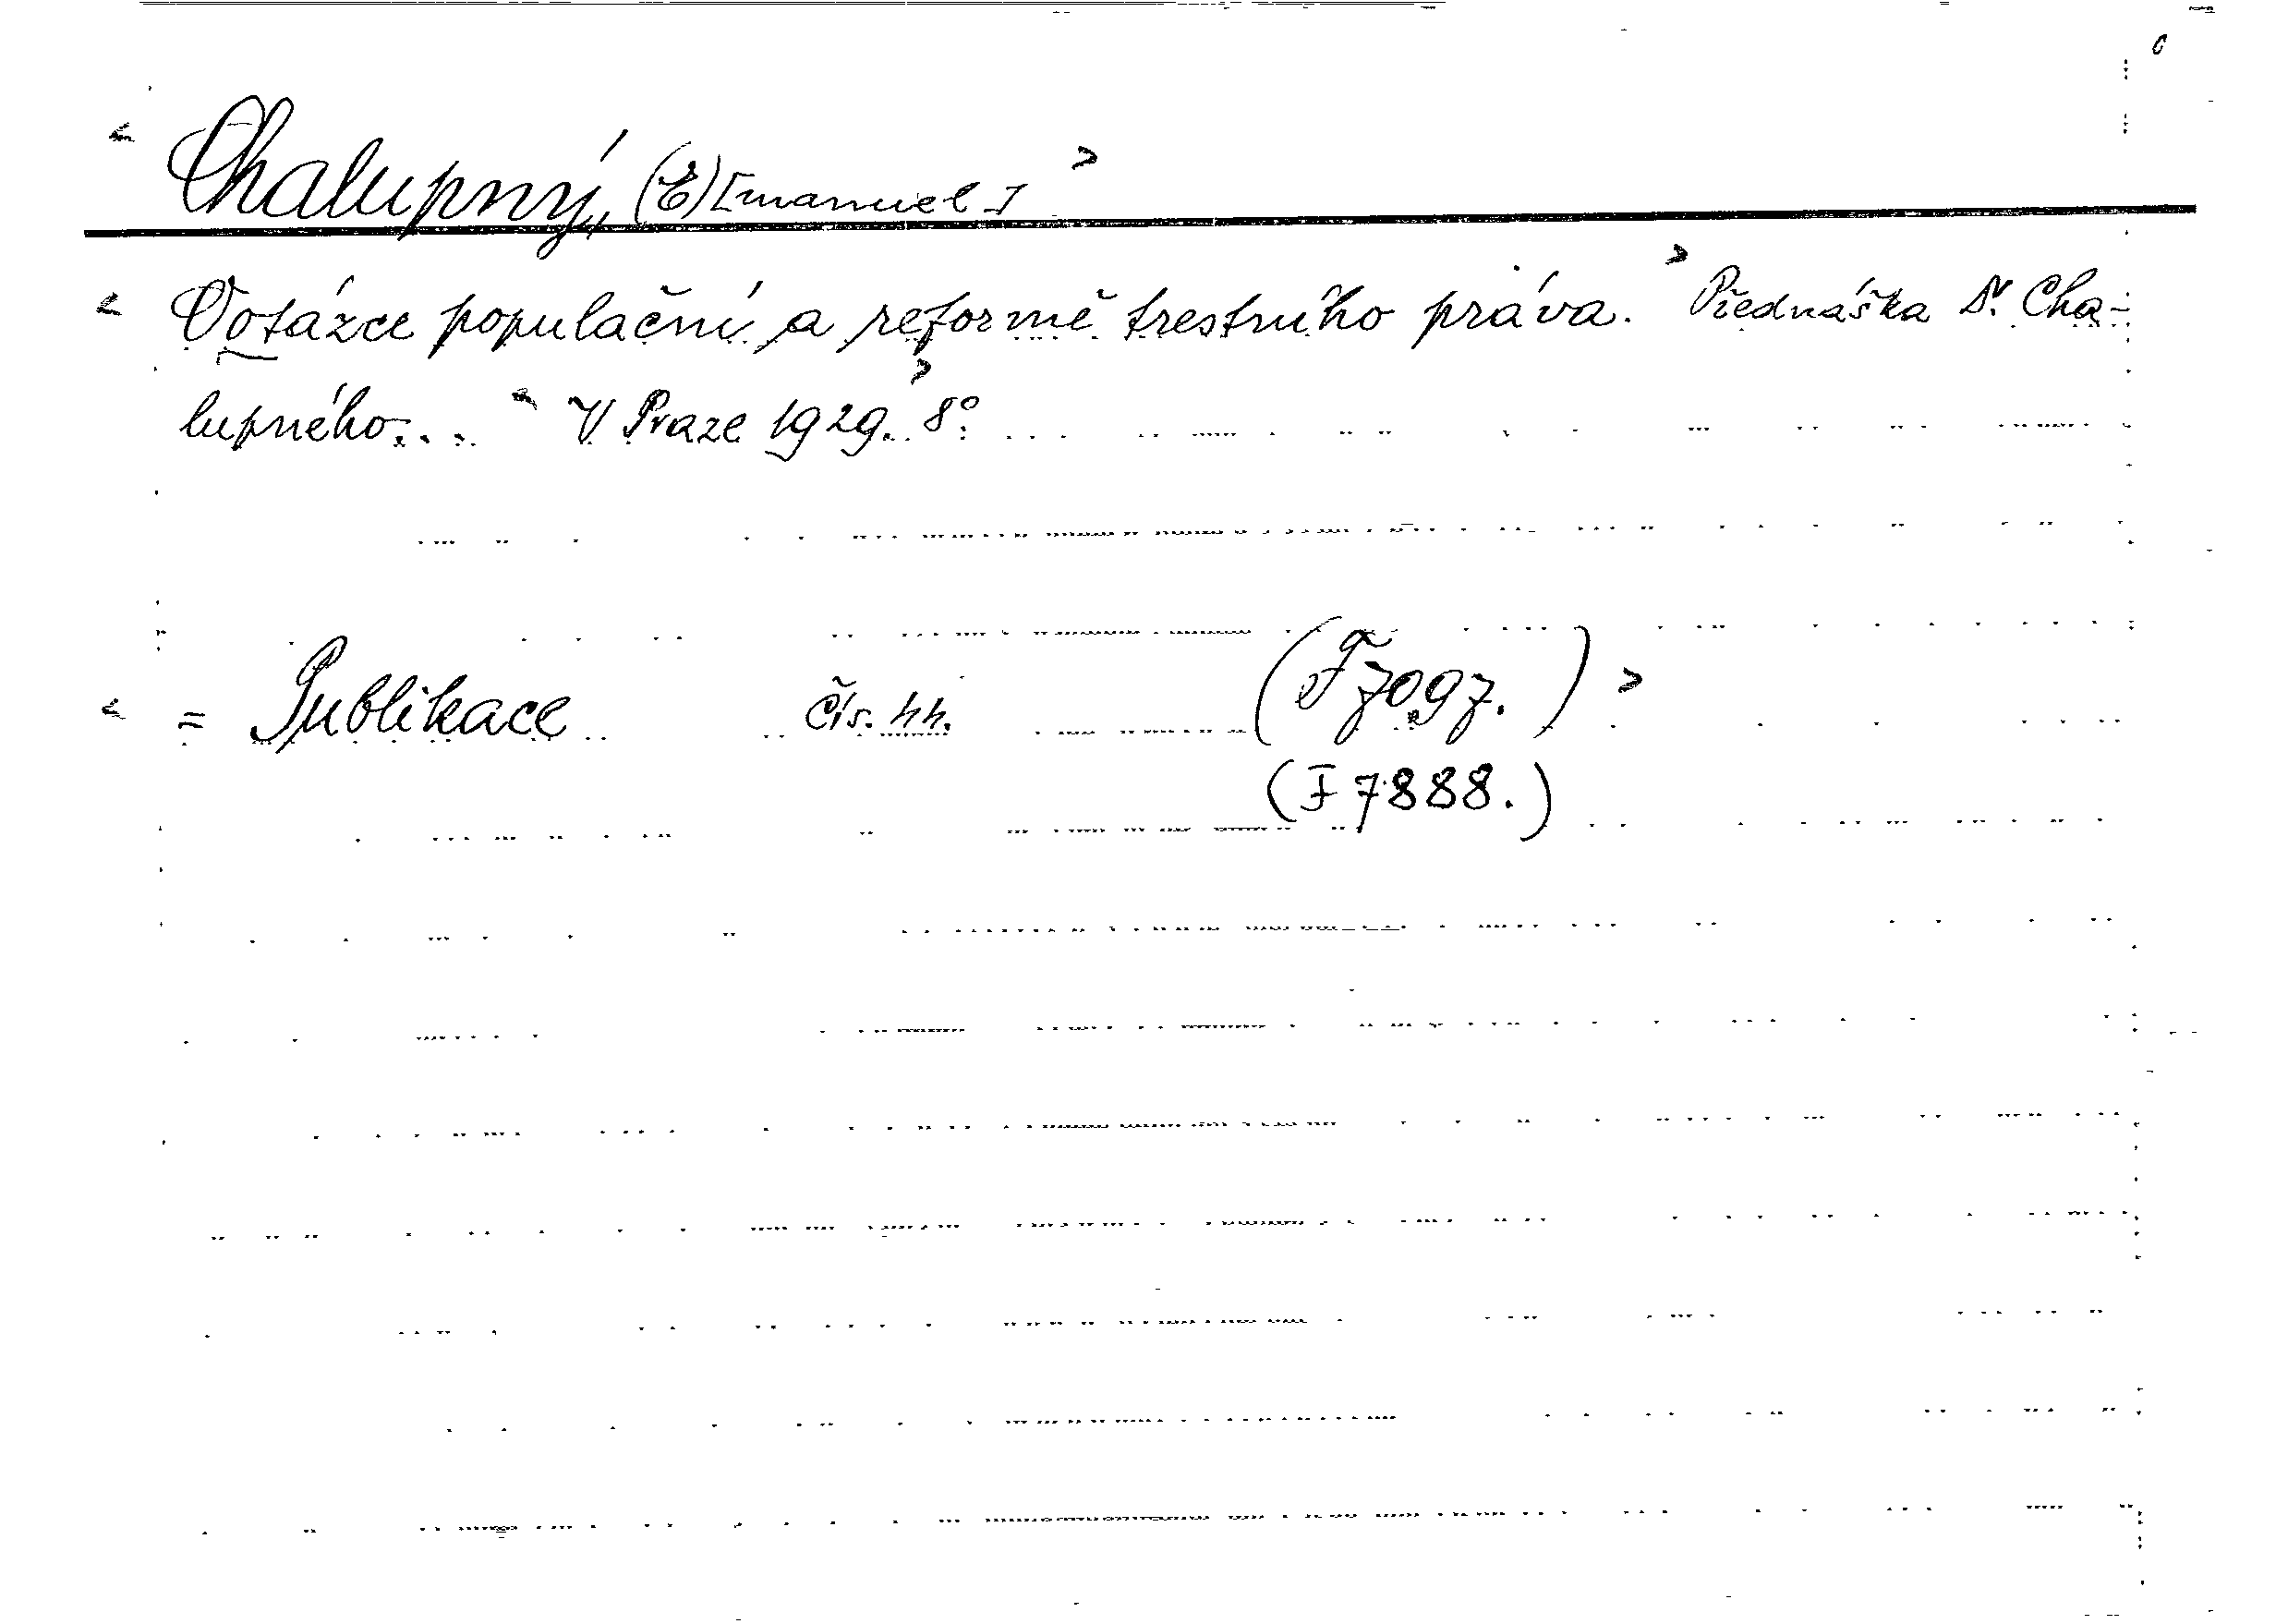 < Chalupný, (E)[manuel] >
< O otázce populační a reformě trestního práva. > Přednáška Dr. Cha-
lupného... < V Praze 1929. > 8°.
< = Publikace čís. 44. (F 7097.) >
(I 7888.)